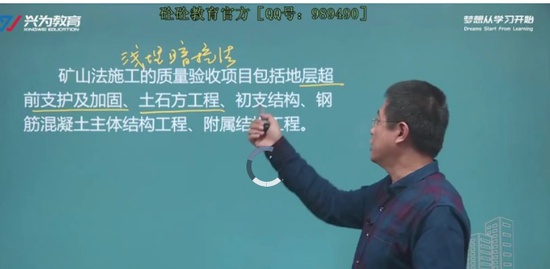 硅硅教育官方［QQ号：989490］
兴为教育
XINGWEI EDUCATION
梦想从学习开始
Dreams Start From Learning
浅埋暗挖法
矿山法施工的质量验收项目包括地层超
前支护及加固、土石方工程、初支结构、钢
筋混凝土主体结构工程、附属结 工程。